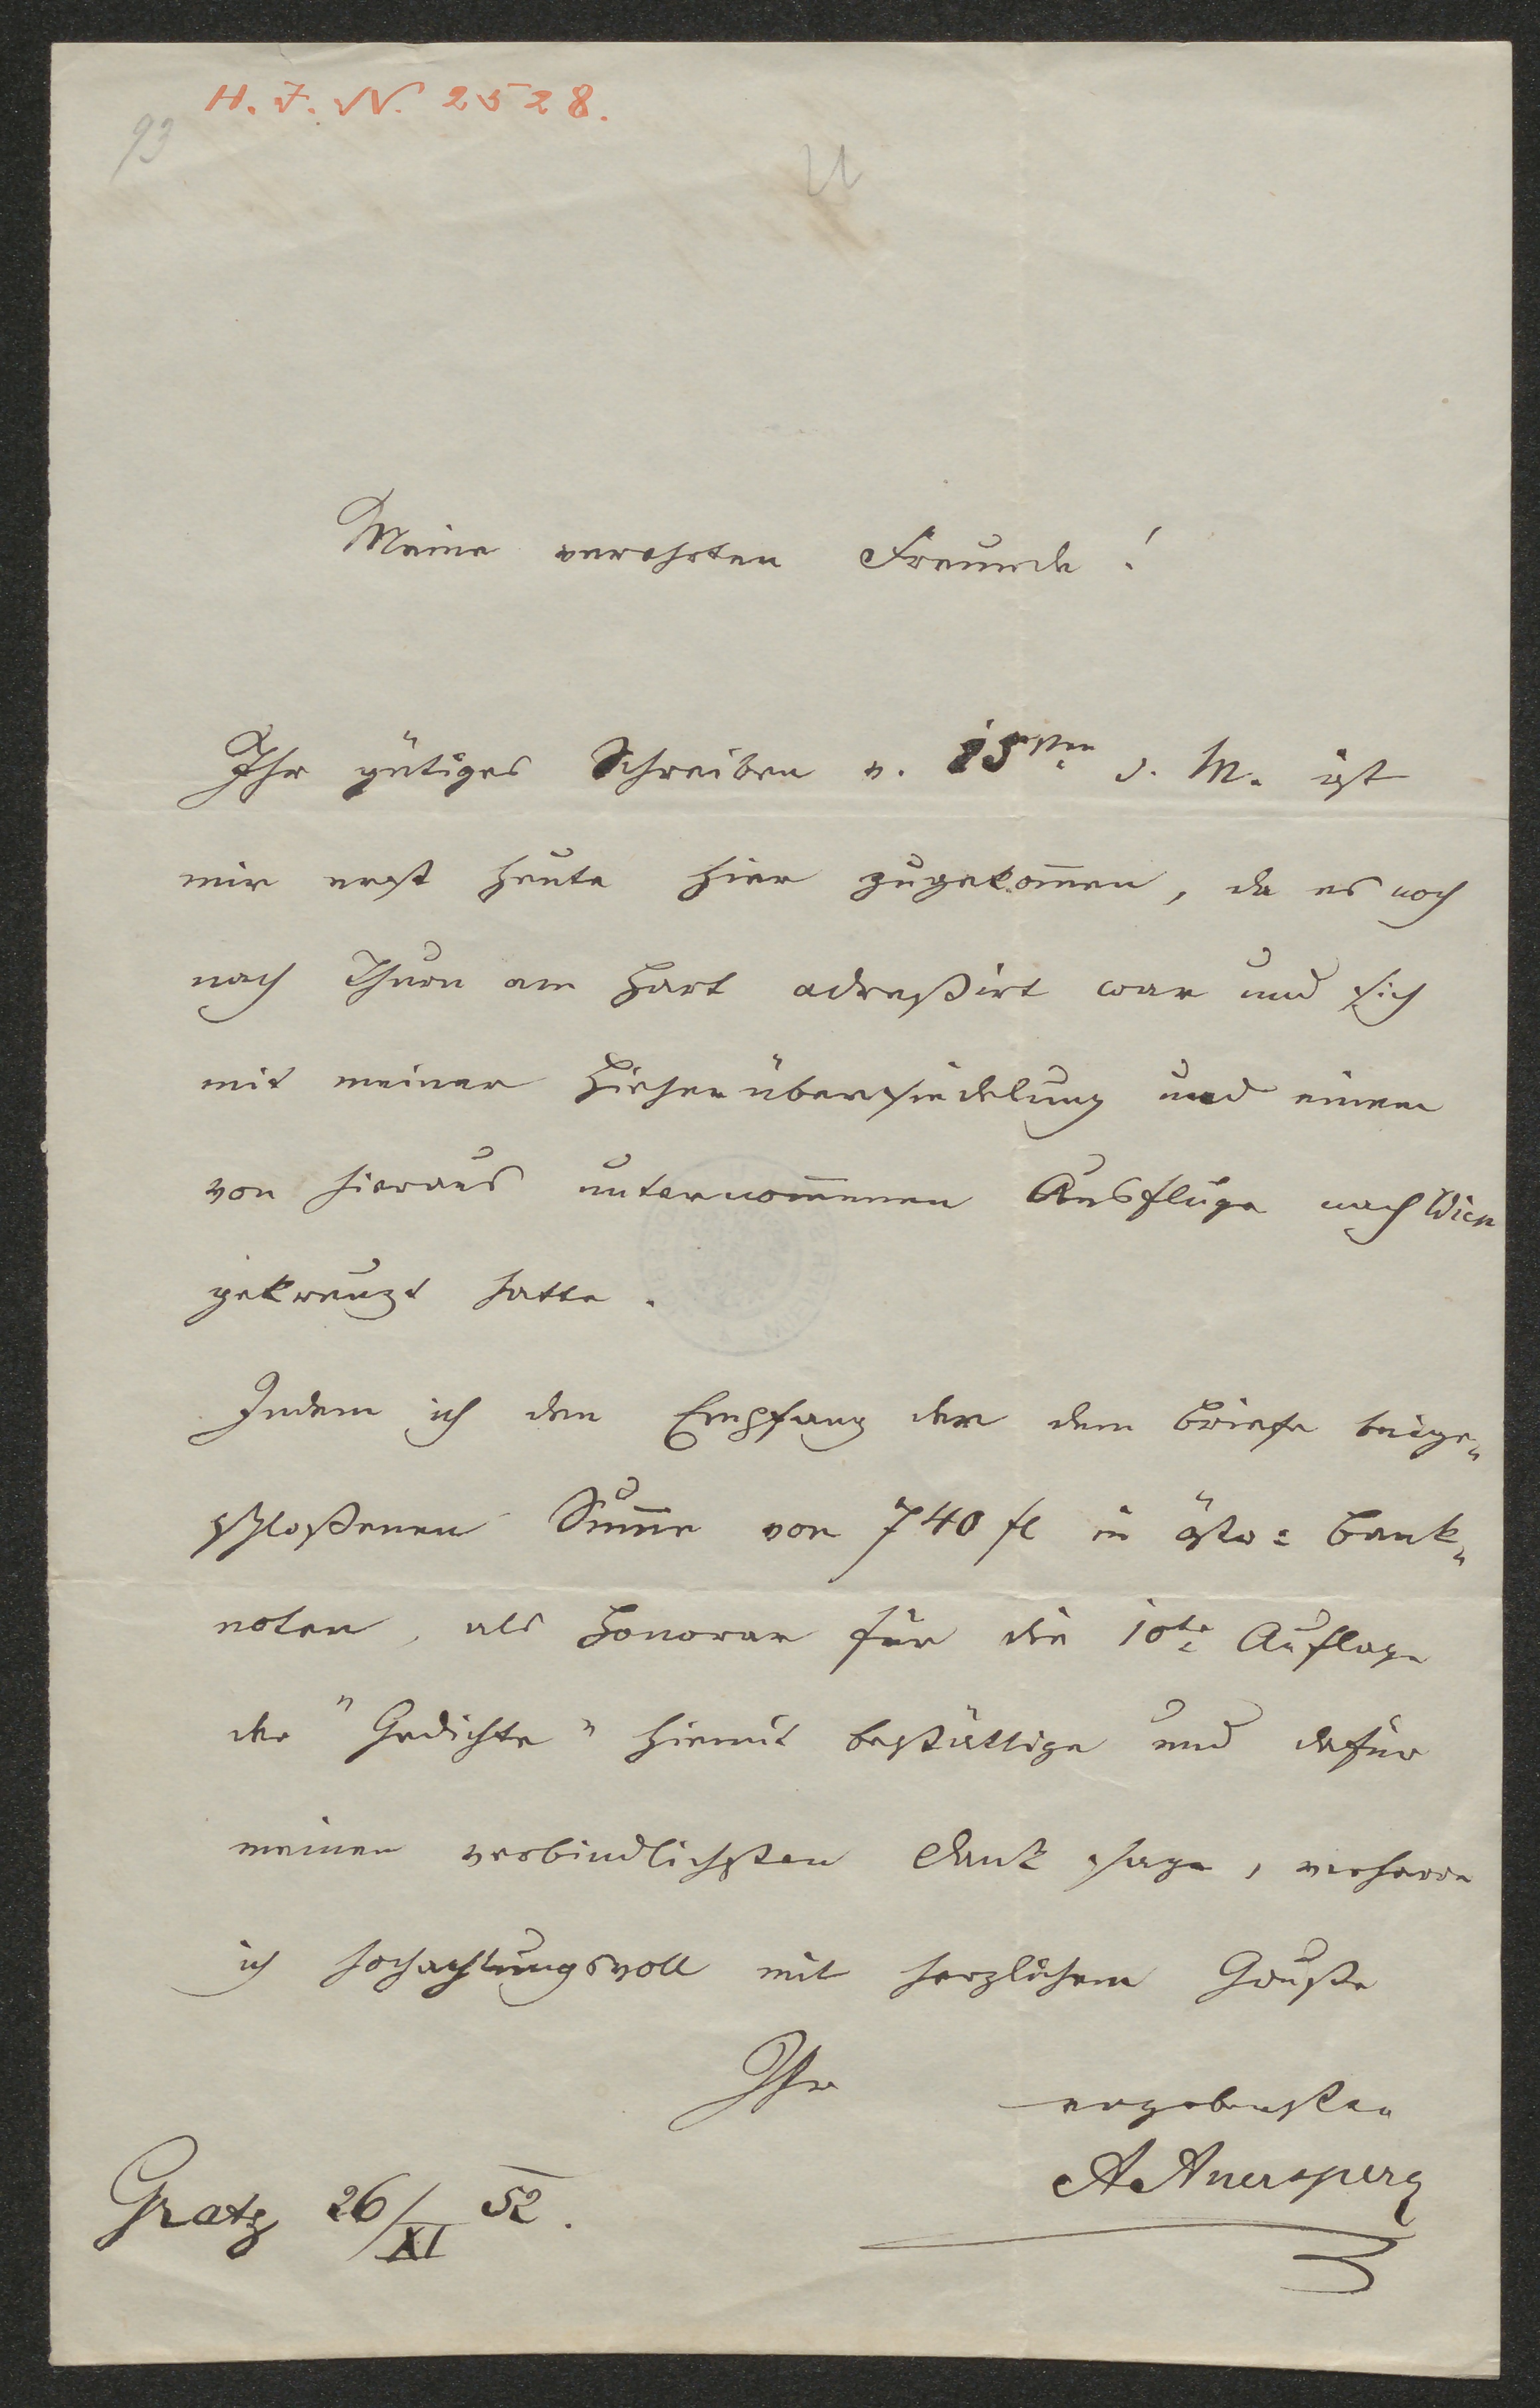 H. J. N. 2528.
93
Meine verehrten Freunde!
Ihr gütiges Schreiben v. 15ten d. M. ist
mir erst heute hier zugekom̄en, da es noch
nach Thurn am Hart adreßirt war und sich
mit meiner Hieherübersiedelung und einem
von hieraus unternom̄enen Ausfluge nach Wien
gekreuzt hatte.
Indem ich den Empfang der dem Briefe beige„
schloßenen Sum̄e von 740 fl in östr: Bank„
noten, als Honorar für die 10te Auflage
der "Gedichte" hiemit bestättige und dafür
meinen verbindlichsten Dank sage, verharre
ich hochachtungsvoll mit herzlichem Gruße
Ihr
ergebensten
A Auersperg
Gratz 26/XI 52.